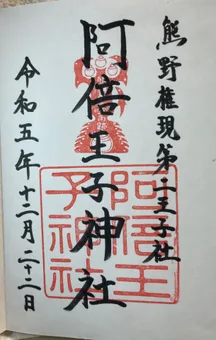 熊野権現第二王子社
阿倍王子神社
令和五年十二月二十三日
阿倍王
子神社